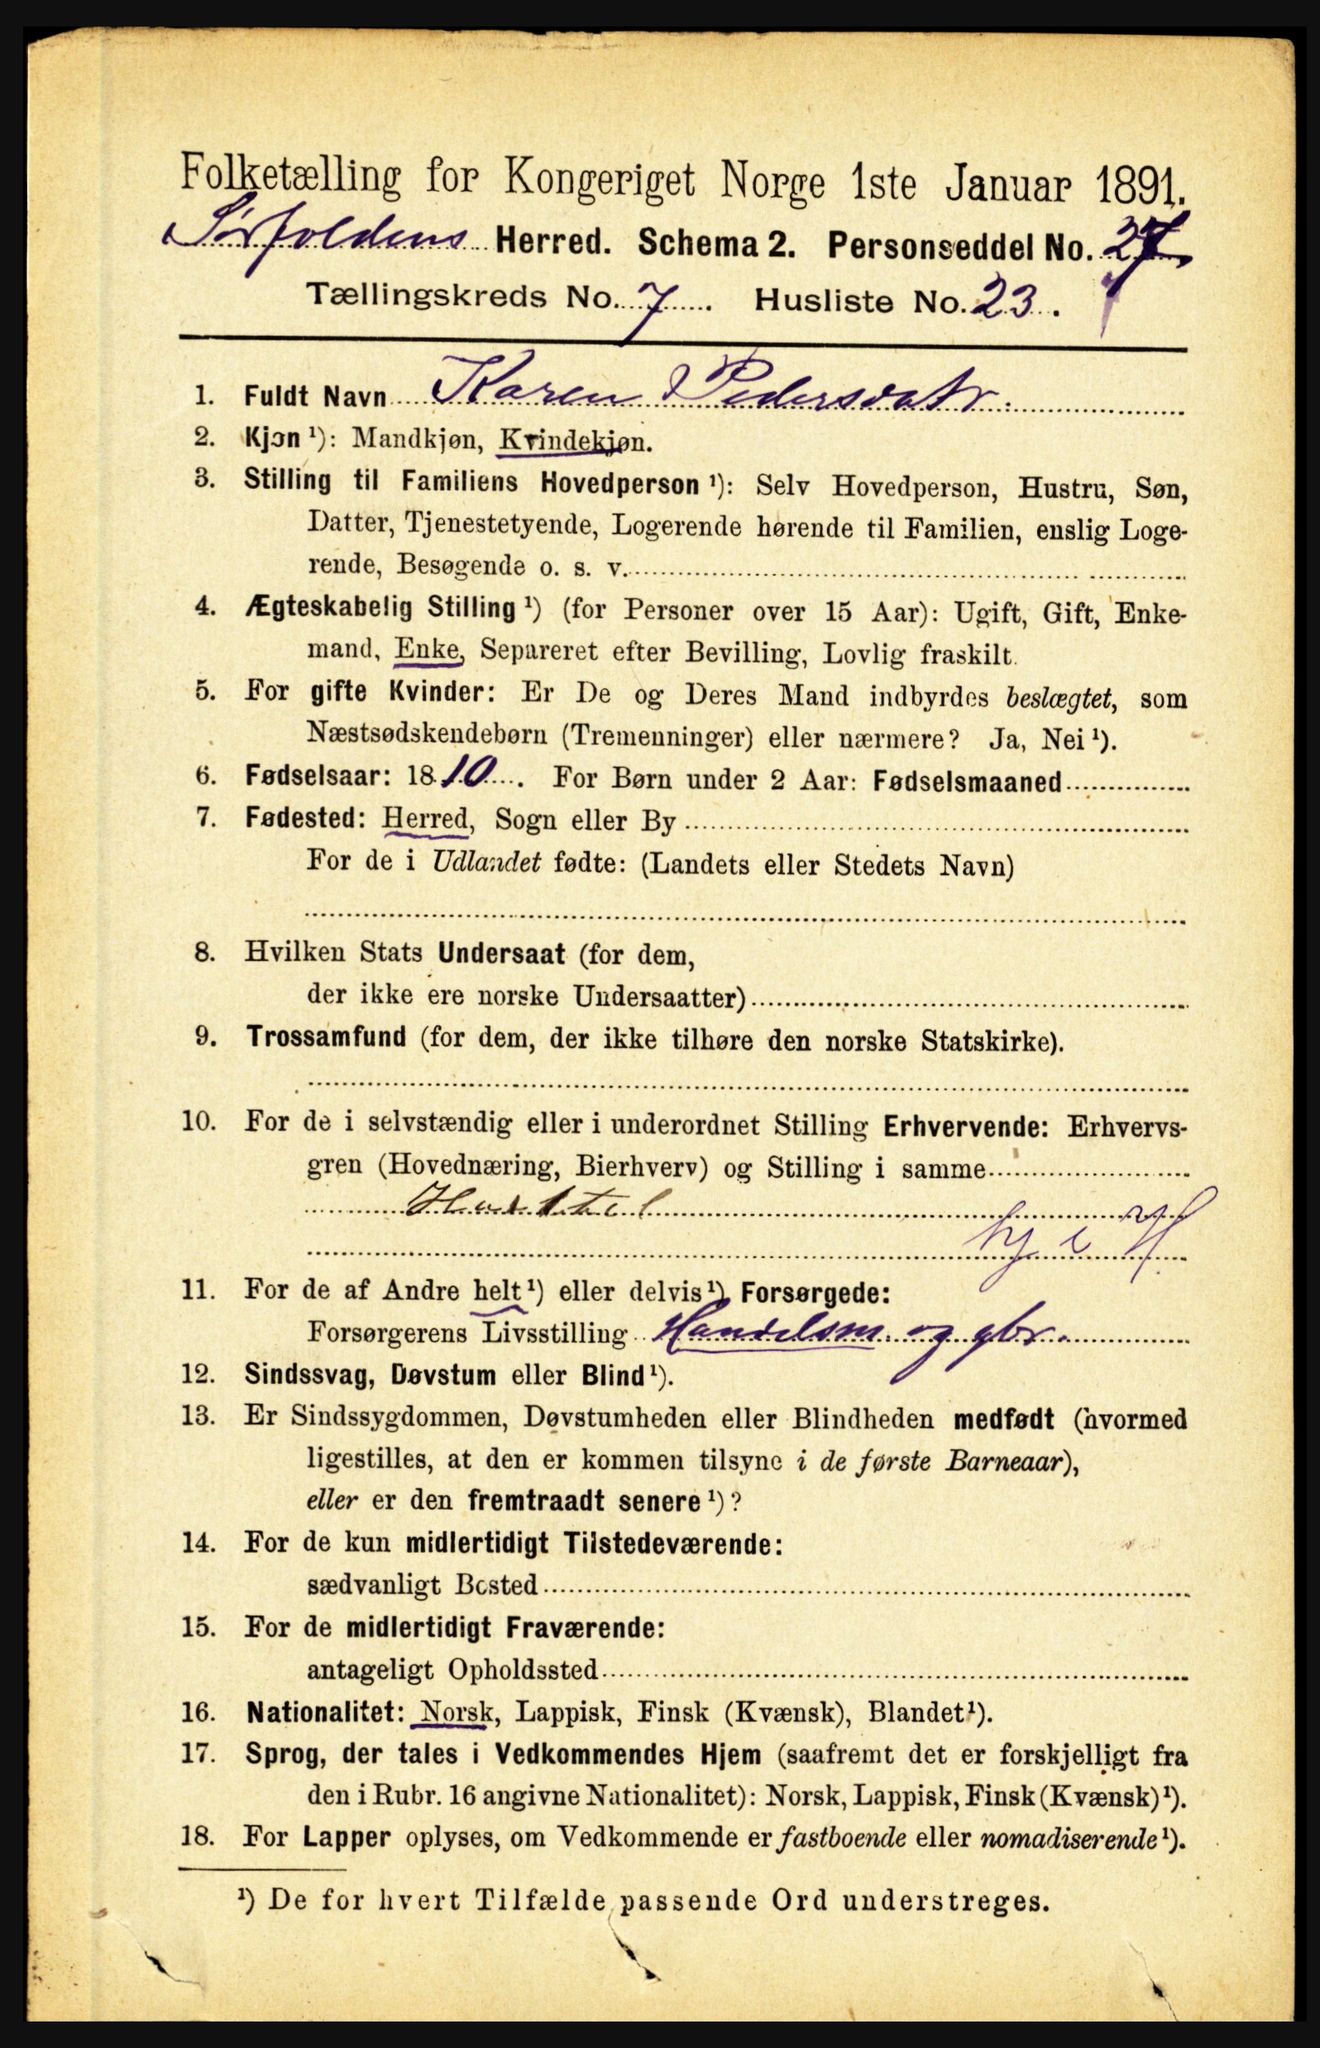 Folketælling for Kongeriget Norge 1ste Januar 1891.
Sørfoldens Herred. Schema 2. Personseddel No. 27
Tællingskreds No. 7. Husliste No. 23.
1. Fuldt Navn Karen Pedersdatr.
2. Kjøn ¹): Mandkjøn, Kvindekjøn.
3. Stilling til Familiens Hovedperson ¹): Selv Hovedperson, Hustru, Søn,
Datter, Tjenestetyende, Logerende hørende til Familien, enslig Loge-
rende, Besøgende o. s. v.
4. Ægteskabelig Stilling ¹) (for Personer over 15 Aar): Ugift, Gift, Enke-
mand, Enke, Separeret efter Bevilling, Lovlig fraskilt.
5. For gifte Kvinder: Er De og Deres Mand indbyrdes beslægtet, som
Næstsødskendebørn (Tremenninger) eller nærmere? Ja, Nei ¹).
6. Fødselsaar: 1810. For Børn under 2 Aar: Fødselsmaaned
7. Fødested: Herred, Sogn eller By
For de i Udlandet fødte: (Landets eller Stedets Navn)
8. Hvilken Stats Undersaat (for dem,
der ikke ere norske Undersaatter)
9. Trossamfund (for dem, der ikke tilhøre den norske Statskirke).
10. For de i selvstændig eller i underordnet Stilling Erhvervende: Erhvervs-
gren (Hovednæring, Bierhverv) og Stilling i samme
hj i H
11. For de af Andre helt ¹) eller delvis ¹) Forsørgede:
Forsørgerens Livsstilling Handelsm. og gbr.
12. Sindssvag, Døvstum eller Blind ¹).
13. Er Sindssygdommen, Døvstumheden eller Blindheden medfødt (hvormed
ligestilles, at den er kommen tilsyne i de første Barneaar),
eller er den fremtraadt senere ¹)?
14. For de kun midlertidigt Tilstedeværende:
sædvanligt Bosted
15. For de midlertidigt Fraværende:
antageligt Opholdssted
16. Nationalitet: Norsk, Lappisk, Finsk (Kvænsk), Blandet ¹).
17. Sprog, der tales i Vedkommendes Hjem (saafremt det er forskjelligt fra
den i Rubr. 16 angivne Nationalitet): Norsk, Lappisk, Finsk (Kvænsk) ¹).
18. For Lapper oplyses, om Vedkommende er fastboende eller nomadiserende ¹).
¹) De for hvert Tilfælde passende Ord understreges.